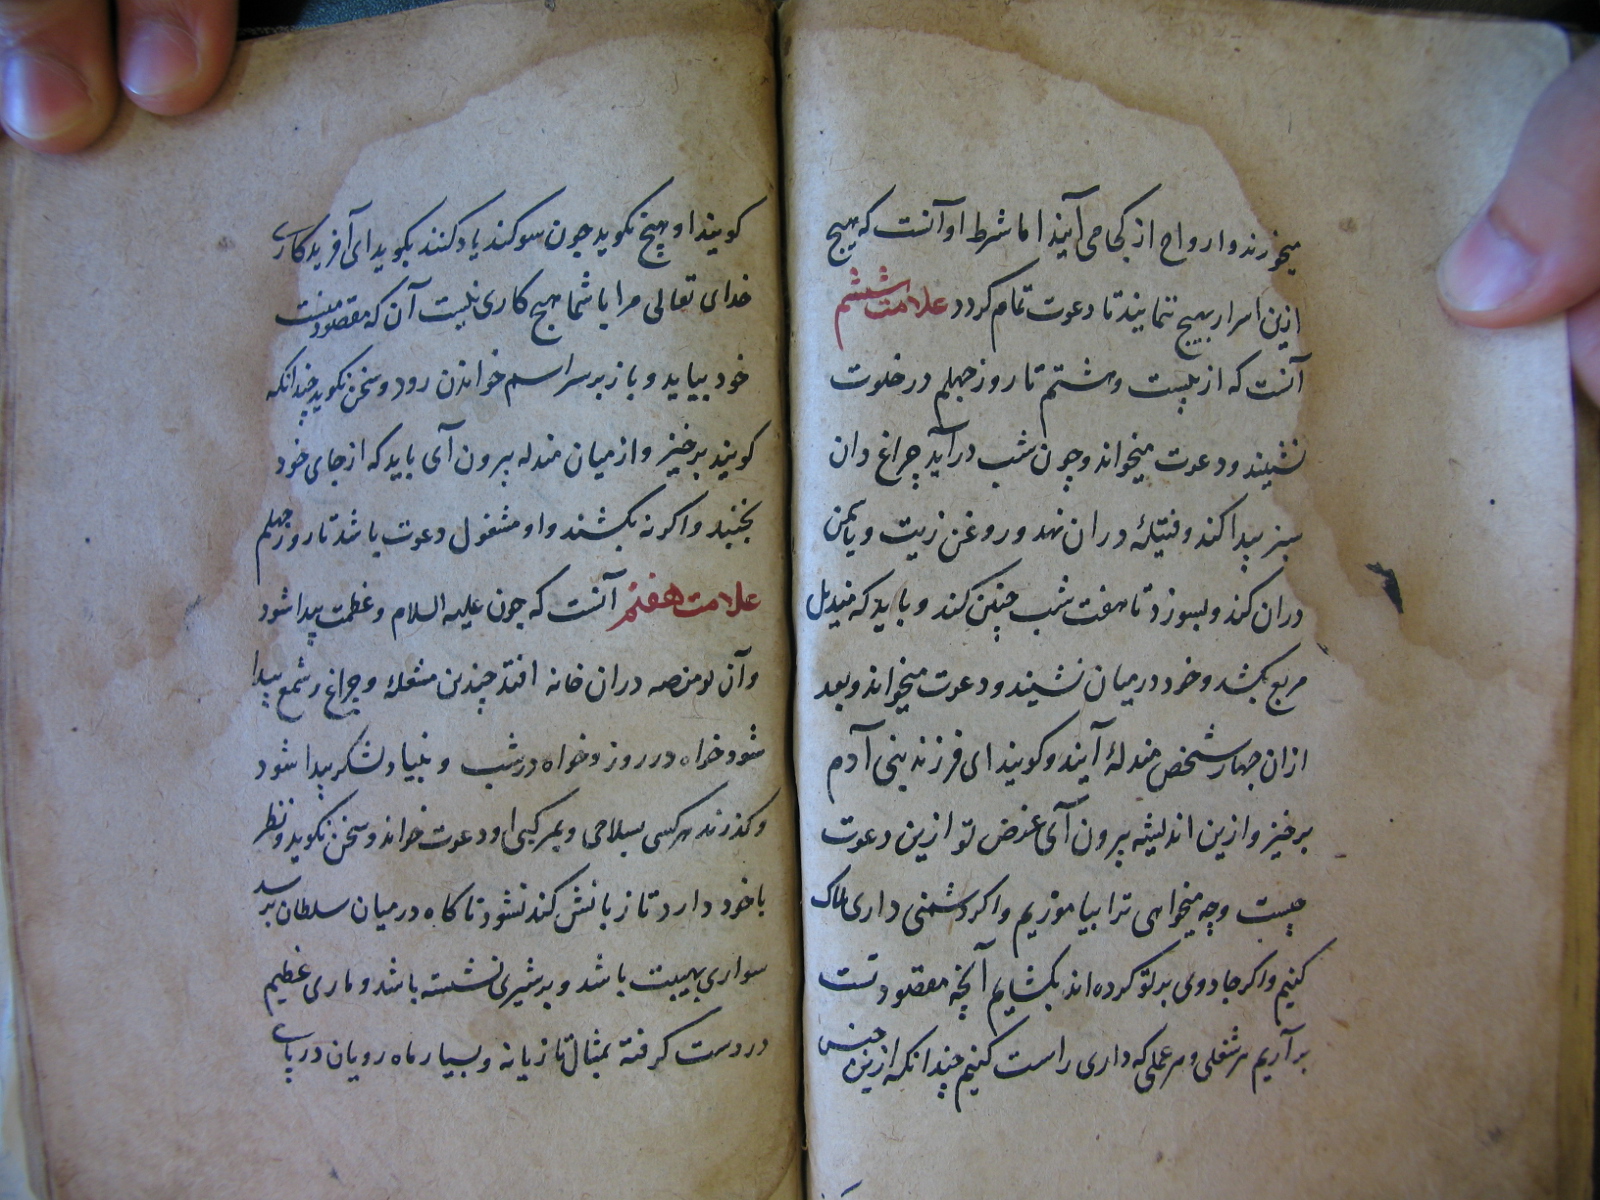 میخورند و ارواح از کجا می آیند اما شرط او آنست که هیچ
ازین اسرار بهیچ ننمایند تا دعوت تمام کردد علامت ششم
آنست که از بیست و هشتم تا روز چهلم در خلوت
نشیند و دعوت میخواند و چون شب در آید چراغ دان
سبز پیدا کند و فتیلهٔ در ان نهد و روغن زیت و یاسمن
دران کند و بسوزد تا هفت شب چنین کند و باید که مندل
مربع بکشد و خود در میان نشیند و دعوت میخواند و بعد
ازان چهار شخص مندلهٔ آیند و کویند ای فرزند بنی آدم
برخیز و ازین اندیشه بیرون آی غرض تو ازین دعوت
چیست و چه میخواهی ترا بیاموزیم و اکر دشمنی داری هلاک
کنیم و اکر جادوی بر تو کرده اند بکشایم آنچه مقصود تست
برآریم هر شغلی و هر عملی که داری راست کنیم چندانکه ازین جنس
کویند او هیچ نکوید چون سوکند یاد کنند بکوید ای آفریدکاری
خدای تعالی مرا با شما هیچ کاری نیست آن که مقصود منست
خود بیاید و باز بر سر اسم خواندن رود و سخن نکوید چندانکه
کویند برخیز و از میان مندله بیرون آی باید که از جای خود
نجنبد و اکرنه بکشند و او مشغول دعوت باشد تا روز چهلم
علامت هفتم آنست که چون علیه السلام و عظمت پیدا شود
و آن در ان خانه افتد چندین مشعلهٔ و چراغ و شمع پیدا
شود خواه در روز و خواه در شب و بنیاد لشکر پیدا شود
و کذرند هر کسی بسلاحی و بمرکبی او دعوت خواند و سخن نکوید و نظر
باخود دارد تا زبانش کند نشود تا کاه در میان سلطان برسد
سواری بهیبت باشد و بر شیری نشسته باشد و ماری عظیم
در دست کرفته بمثال تازیانه و بسیار ماه رویان در پای